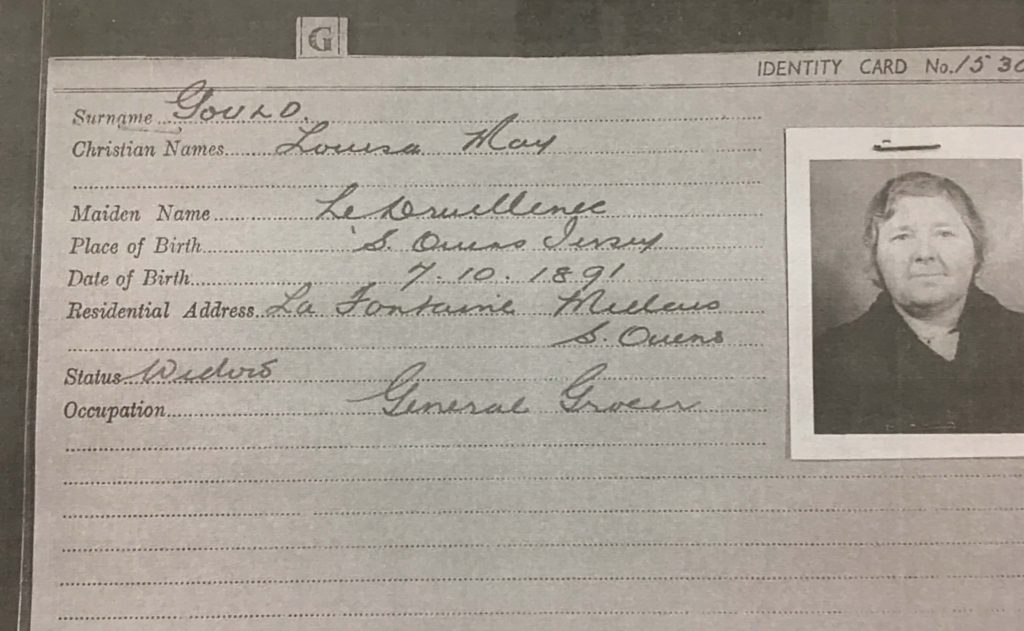 G
IDENTITY CARD No. 1530
Surname Gould.
Christian Names Louisa May
Maiden Name Le Druillenec
Place of Birth S. Ouens Jersey
Date of Birth 7.10.1891
Residential Address La Fontaine Millais
S. Ouens
Status Widow
Occupation General Grocer